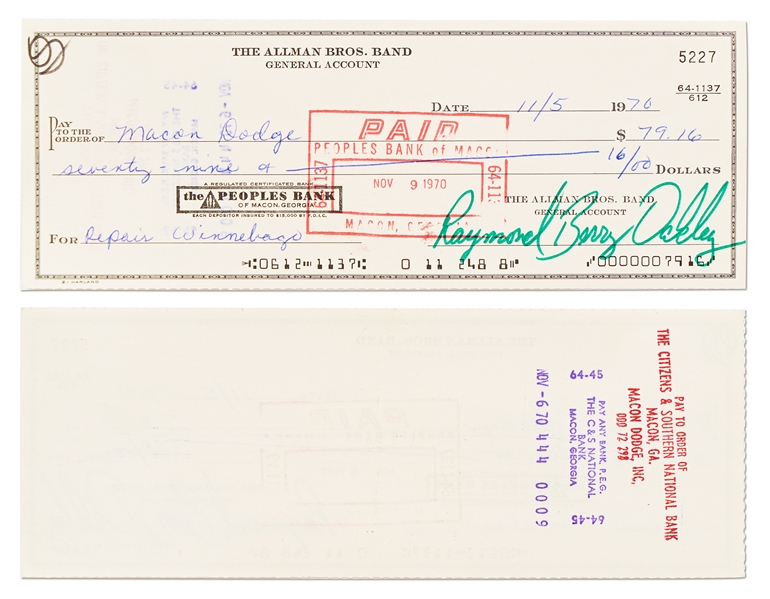 THE ALLMAN BROS. BAND
GENERAL ACCOUNT
5227
64-1137
612
DATE 11/5 1970
PAY
TO THE
ORDER OF Macon Dodge $ 79.16
seventy-nine & 16/00 DOLLARS
PAID
PEOPLES BANK of MACON
64-1137
NOV 9 1970
64-113
MACON, G
A REGULATED CERTIFICATED BANK
the PEOPLES BANK
OF MACON, GEORGIA
EACH DEPOSITOR INSURED TO $15,000 BY F.D.I.C.
THE ALLMAN BROS. BAND
GENERAL ACCOUNT
FOR Repair Winnebago
Raymond Berry Oakley
⑆0612⑉1137⑆ 0 11 248 8⑈ ⑈0000007916⑈
HARLAND
PAY TO ORDER OF
THE CITIZENS & SOUTHERN NATIONAL BANK
MACON, GA.
MACON DODGE, INC.
000 72 298
64-45
PAY ANY BANK, P.E.G.
THE C&S NATIONAL
BANK
MACON, GEORGIA
64-45
NOV-6 70 444 0009